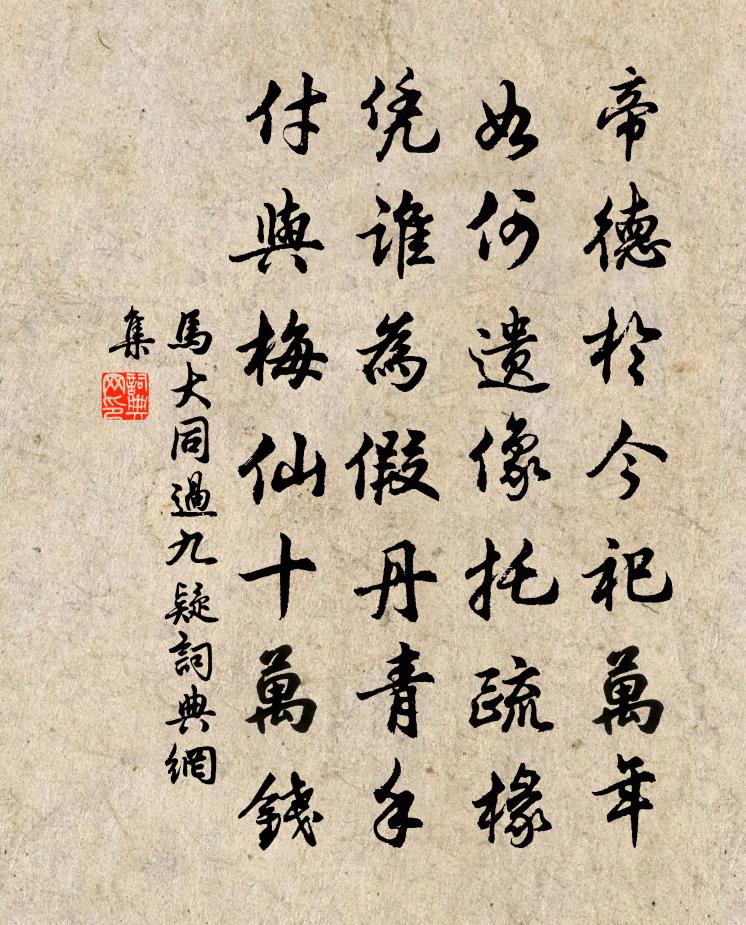 帝德於今祀萬年
如何遗像托疏椽
凭誰為假丹青手
付與梅仙十萬錢
馬大同過九疑詞典網
集
詞典
网印